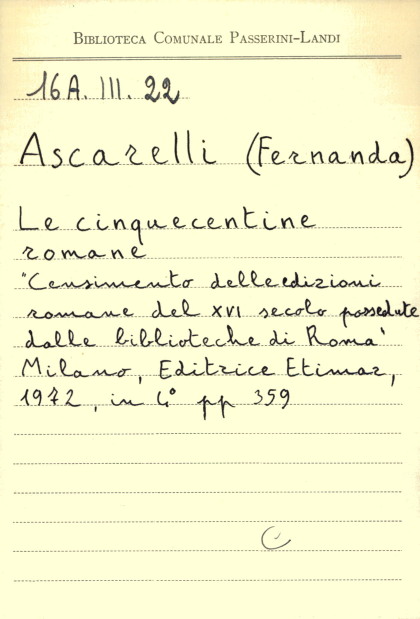 BIBLIOTECA COMUNALE PASSERINI-LANDI
16A. III. 22
Ascarelli (Fernanda)
Le cinquecentine
romane
"Censimento delle edizioni
romane del XVI secolo possedute
dalle biblioteche di Roma"
Milano, Editrice Etimar,
1972, in 4° pp 359
C